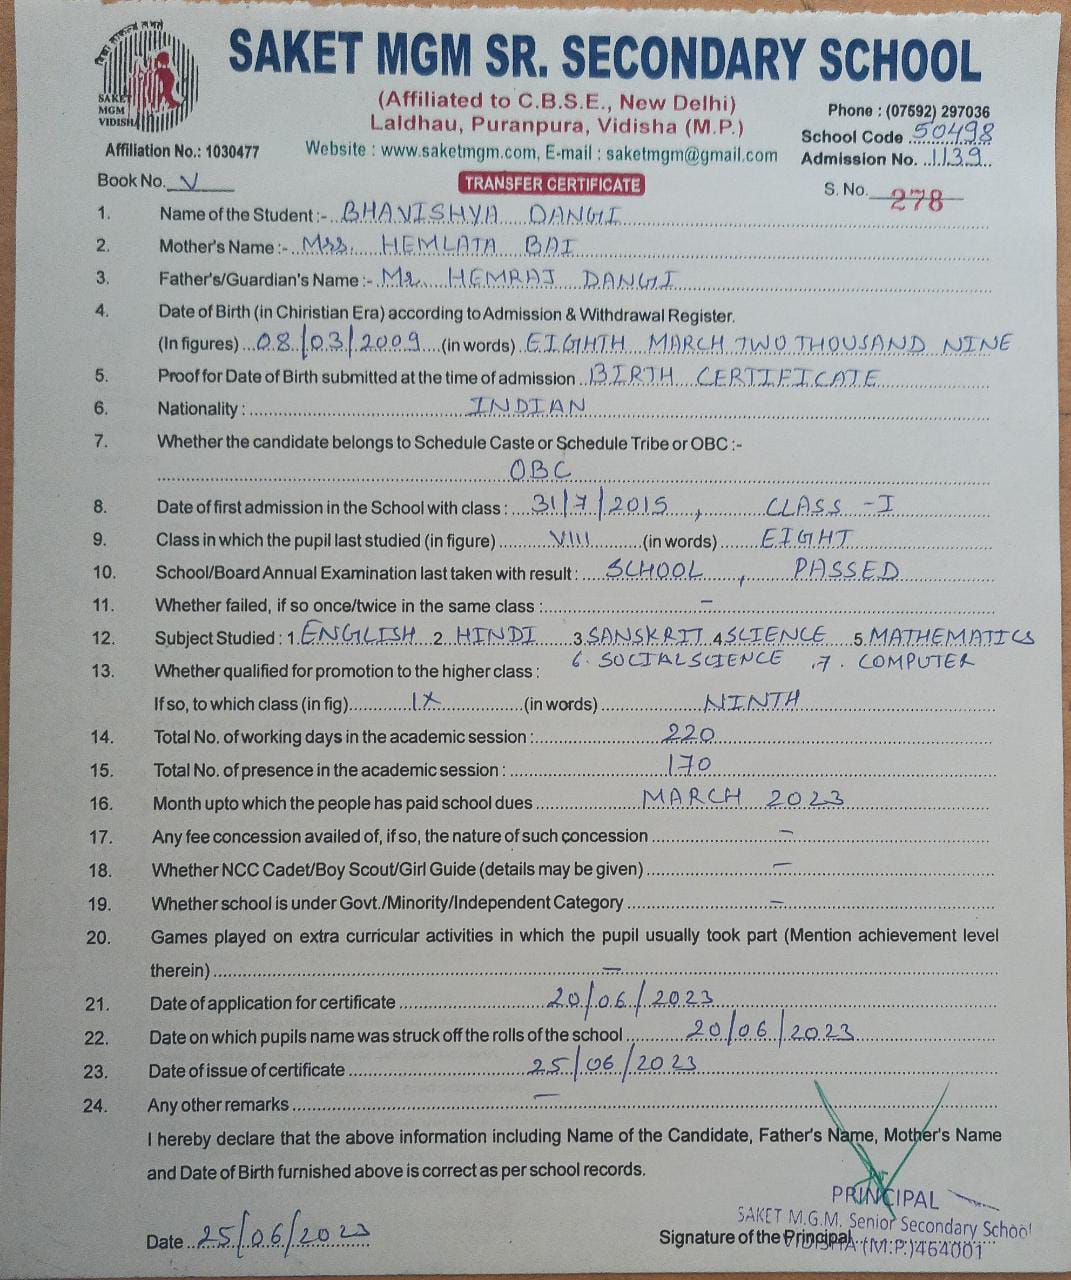 SAKET MGM SR. SECONDARY SCHOOL
SAKET
MGM
VIDISHA
(Affiliated to C.B.S.E., New Delhi)
Laldhau, Puranpura, Vidisha (M.P.)
Phone : (07592) 297036
School Code 50498
Affiliation No.: 1030477
Website : www.saketmgm.com, E-mail : saketmgm@gmail.com
Admission No. 1139
Book No. V
TRANSFER CERTIFICATE
S. No. 278
1. Name of the Student :- BHAVISHYA DANGI
2. Mother's Name :- Mrs. HEMLATA BAI
3. Father's/Guardian's Name :- Mr. HEMRAJ DANGI
4. Date of Birth (in Chiristian Era) according to Admission & Withdrawal Register.
(In figures) 08/03/2009 (in words) EIGHTH MARCH TWO THOUSAND NINE
5. Proof for Date of Birth submitted at the time of admission BIRTH CERTIFICATE
6. Nationality : INDIAN
7. Whether the candidate belongs to Schedule Caste or Schedule Tribe or OBC :-
OBC
8. Date of first admission in the School with class : 31/7/2015, CLASS - I
9. Class in which the pupil last studied (in figure) VIII (in words) EIGHT
10. School/Board Annual Examination last taken with result : SCHOOL, PASSED
11. Whether failed, if so once/twice in the same class : -
12. Subject Studied : 1. ENGLISH 2. HINDI 3. SANSKRIT 4 SCIENCE 5. MATHEMATICS
6. SOCIAL SCIENCE , 7. COMPUTER
13. Whether qualified for promotion to the higher class :
If so, to which class (in fig) IX (in words) NINTH
14. Total No. of working days in the academic session : 220
15. Total No. of presence in the academic session : 170
16. Month upto which the people has paid school dues MARCH 2023
17. Any fee concession availed of, if so, the nature of such concession -
18. Whether NCC Cadet/Boy Scout/Girl Guide (details may be given) -
19. Whether school is under Govt./Minority/Independent Category -
20. Games played on extra curricular activities in which the pupil usually took part (Mention achievement level
therein) -
21. Date of application for certificate 20/06/2023
22. Date on which pupils name was struck off the rolls of the school 20/06/2023
23. Date of issue of certificate 25/06/2023
24. Any other remarks -
I hereby declare that the above information including Name of the Candidate, Father's Name, Mother's Name
and Date of Birth furnished above is correct as per school records.
PRINCIPAL
SAKET M.G.M. Senior Secondary School
Date 25/06/2023
Signature of the Principal
VIDISHA (M.P.) 464001